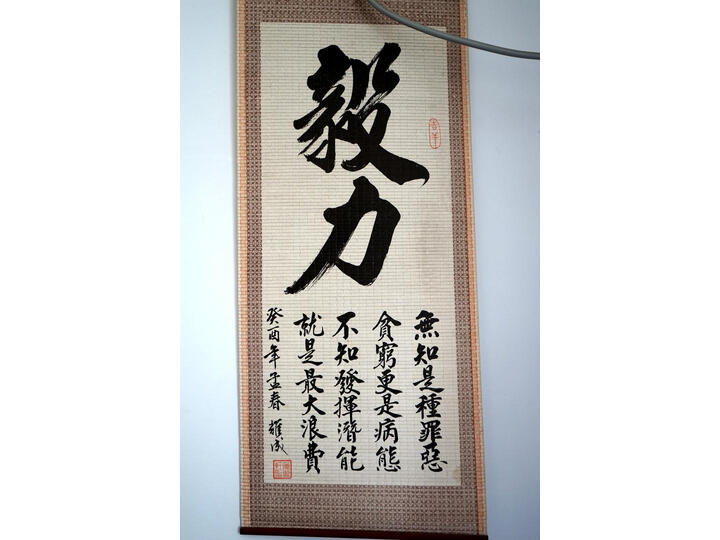 毅力
無知是種罪惡
貧窮更是病態
不知發揮潛能
就是最大浪費
癸酉年孟春 耀成